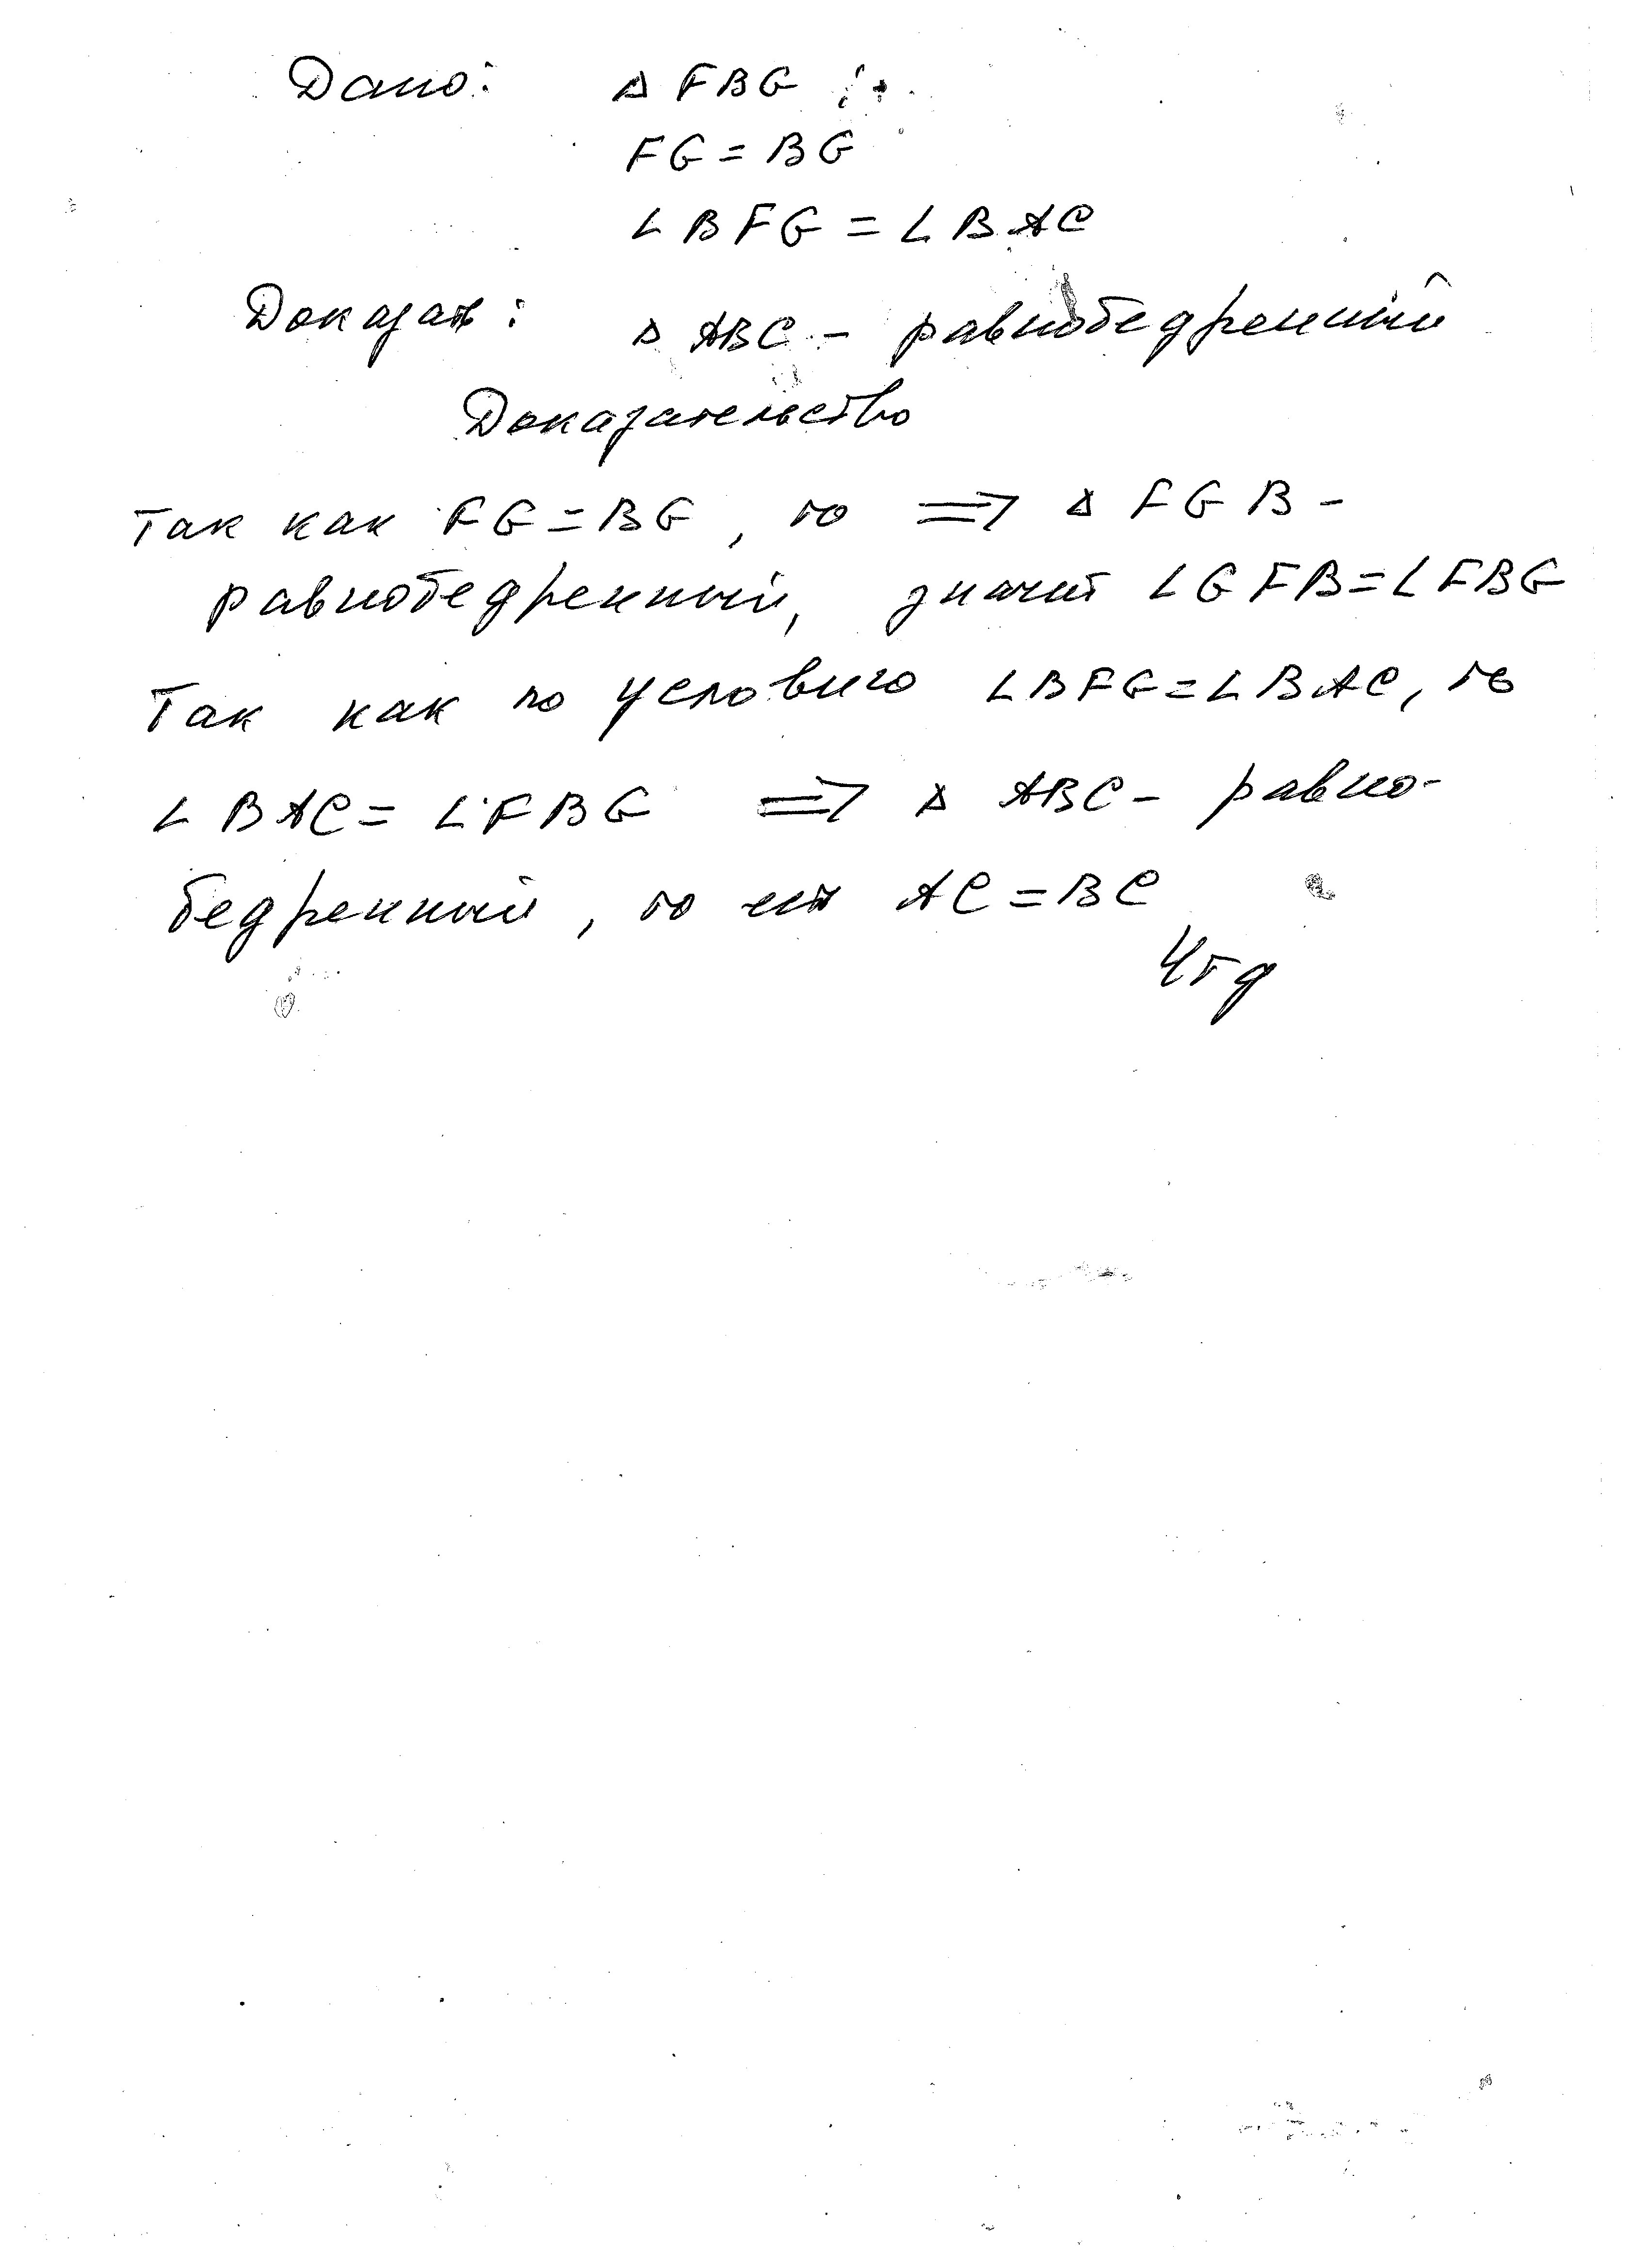 Дано: Δ FBG
FG = BG
∠ BFG = ∠ BAC
Доказать: Δ ABC - равнобедренный
Доказательство
Так как FG = BG, то ⟹ Δ FGB -
равнобедренный, значит ∠ GFB = ∠ FBG
Так как по условию ∠ BFG = ∠ BAC, то
∠ BAC = ∠ FBG ⟹ Δ ABC - равно-
бедренный, то есть AC = BC
Чтд